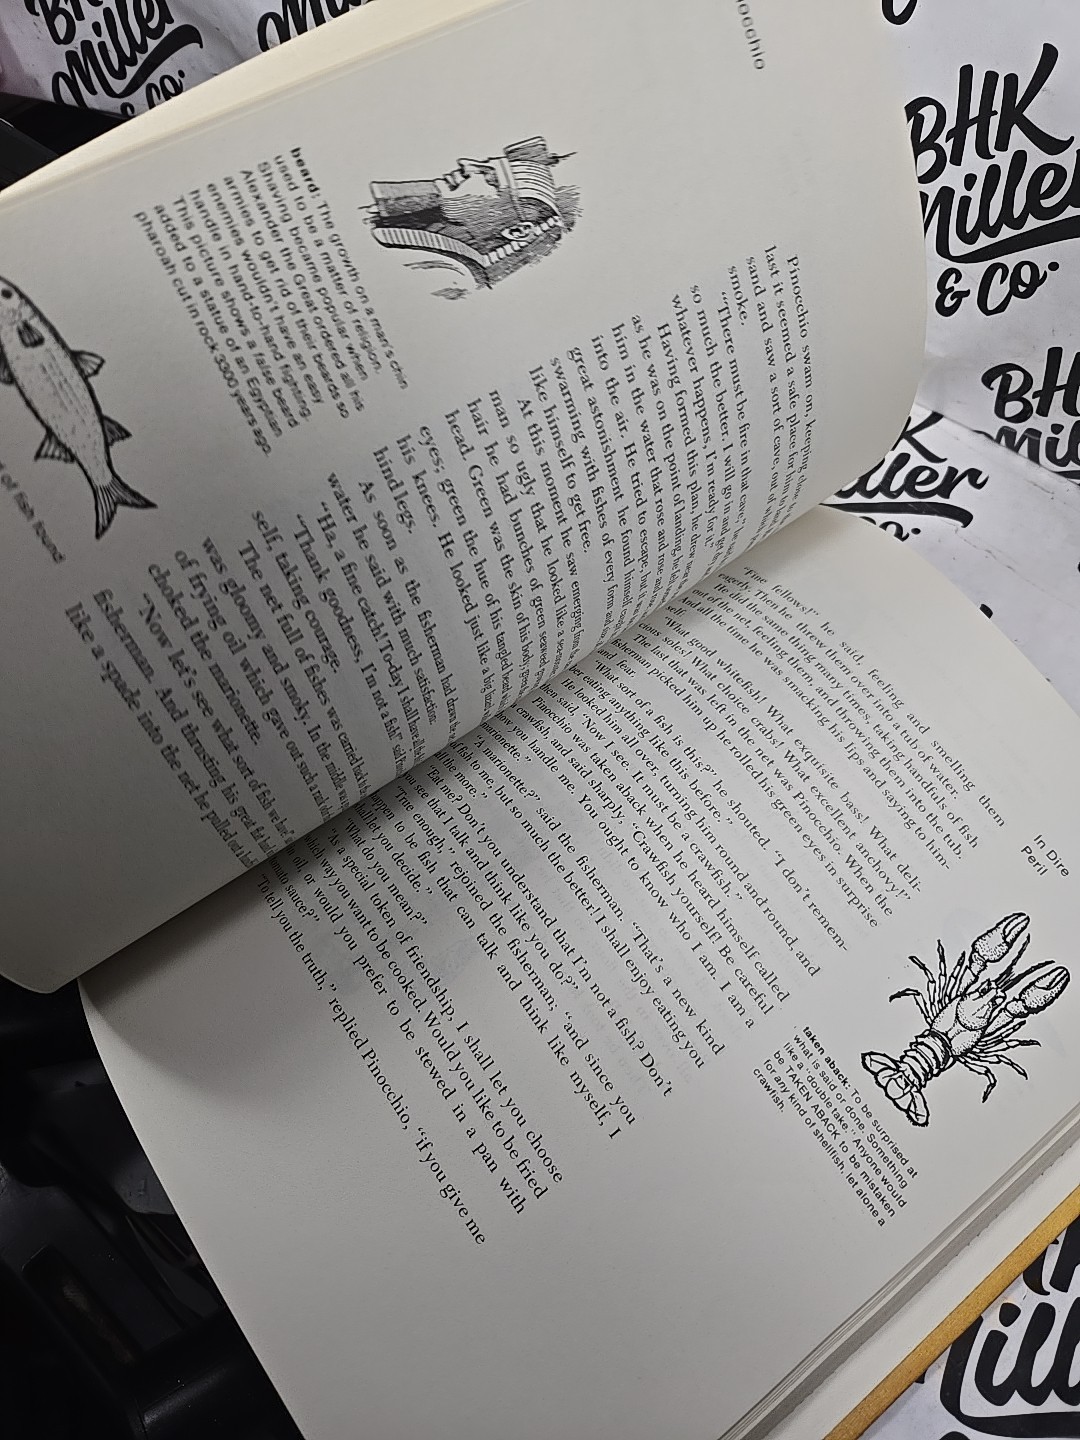 Pinocchio swam on, keeping close to
last it seemed a safe place for him to
sand and saw a sort of cave, out of
smoke.
“There must be fire in that cave,”
so much the better. I will go in and get
whatever happens, I'm ready for it.”
Having formed this plan, he drew near
as he was on the point of landing, he
him in the water that rose and rose and
into the air. He tried to escape, but
great astonishment he found himself
swarming with fishes of every form and
like himself to get free.
At this moment he saw emerging from
man so ugly that he looked like a sea
hair he had bunches of green seaweed
head. Green was the skin of his body, green
eyes; green the hue of his tangled beard
his knees. He looked just like a big
hind legs.
As soon as the fisherman had drawn the
water he said with much satisfaction:
“Ha, a fine catch! Today I shall have all
“Thank goodness, I'm not a fish!” said
self, taking courage.
The net full of fishes was carried back
was gloomy and smoky. In the middle
of frying oil which gave out such a
choked the marionette.
“Now let's see what sort of fish we have!”
fisherman. And thrusting his great
like a spade into the net he pulled out
beard: The growth on a man's chin
used to be a matter of religion.
Shaving became popular when
Alexander the Great ordered all his
armies to get rid of their beards so
enemies wouldn't have an easy
handle in hand-to-hand fighting.
This picture shows a false beard
added to a statue of an Egyptian
pharoah cut in rock 3300 years ago.
of fish found
In Dire
Peril
“Fine fellows!” he said, feeling and smelling them
eagerly. Then he threw them over into a tub of water.
He did the same thing many times, taking handfuls of fish
out of the net, feeling them, and throwing them into the tub.
And all the time he was smacking his lips and saying to him-
self:
“What good whitefish! What exquisite bass! What deli-
cious soles! What choice crabs! What excellent anchovy!”
The last that was left in the net was Pinocchio. When the
fisherman picked him up he rolled his green eyes in surprise
and fear.
“What sort of a fish is this?” he shouted. “I don't remem-
ber eating anything like this before.”
He looked him all over, turning him round and round, and
then said, “Now I see. It must be a crawfish.”
Pinocchio was taken aback when he heard himself called
crawfish, and said sharply, “Crawfish yourself! Be careful
how you handle me. You ought to know who I am. I am a
marionette.”
“A marionette?” said the fisherman. “That's a new kind
of fish to me, but so much the better! I shall enjoy eating you
all the more.”
“Eat me? Don't you understand that I'm not a fish? Don't
you see that I talk and think like you do?”
“True enough,” rejoined the fisherman; “and since you
happen to be fish that can talk and think like myself, I
shall let you decide.”
“What do you mean?”
“As a special token of friendship, I shall let you choose
which way you want to be cooked. Would you like to be fried
in oil or would you prefer to be stewed in a pan with
tomato sauce?”
“To tell you the truth,” replied Pinocchio, “if you give me
taken aback: To be surprised at
what is said or done. Something
like a “double take.” Anyone would
be TAKEN ABACK to be mistaken
for any kind of shellfish, let alone a
crawfish.
BHK
Miller
& Co.
BHK
Miller
& Co.